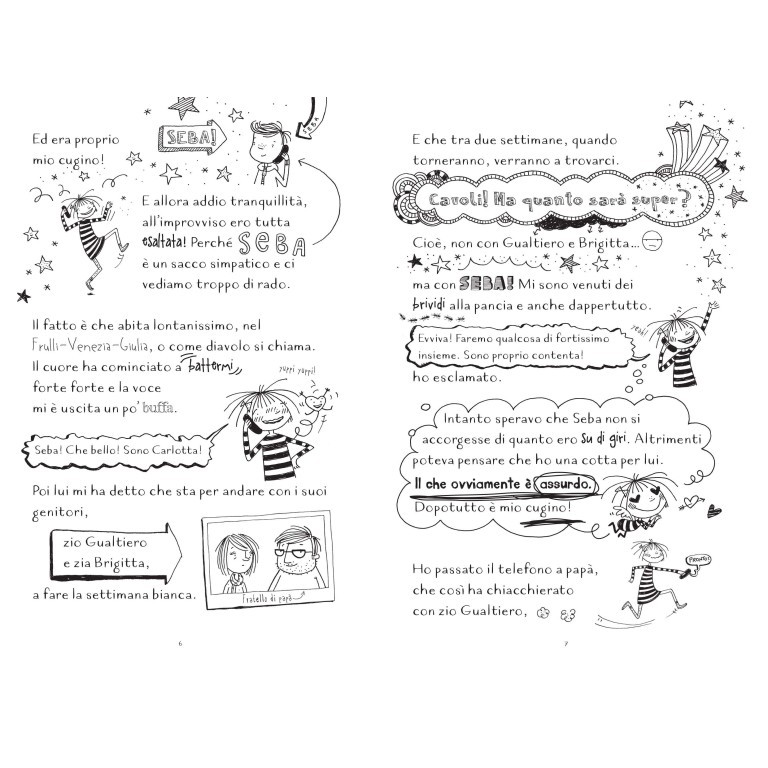 Ed era proprio
mio cugino!
SEBA!
SEBA
E allora addio tranquillità,
all'improvviso ero tutta
esaltata! Perché SEBA
è un sacco simpatico e ci
vediamo troppo di rado.
Il fatto è che abita lontanissimo, nel
Frulli-Venezia-Giulia, o come diavolo si chiama.
Il cuore ha cominciato a battermi
forte forte e la voce
mi è uscita un po' buffa.
yuppi yuppi!
Seba! Che bello! Sono Carlotta!
Poi lui mi ha detto che sta per andare con i suoi
genitori,
zio Gualtiero
e zia Brigitta,
fratello di papà
a fare la settimana bianca.
6
E che tra due settimane, quando
torneranno, verranno a trovarci.
Cavoli! Ma quanto sarà super?
Cioè, non con Gualtiero e Brigitta...
ma con SEBA! Mi sono venuti dei
brividi alla pancia e anche dappertutto.
yeah!
Evviva! Faremo qualcosa di fortissimo
insieme. Sono proprio contenta!
ho esclamato.
Intanto speravo che Seba non si
accorgesse di quanto ero su di giri. Altrimenti
poteva pensare che ho una cotta per lui.
Il che ovviamente è assurdo.
Dopotutto è mio cugino!
PRONTO!
Ho passato il telefono a papà,
che così ha chiacchierato
con zio Gualtiero,
7